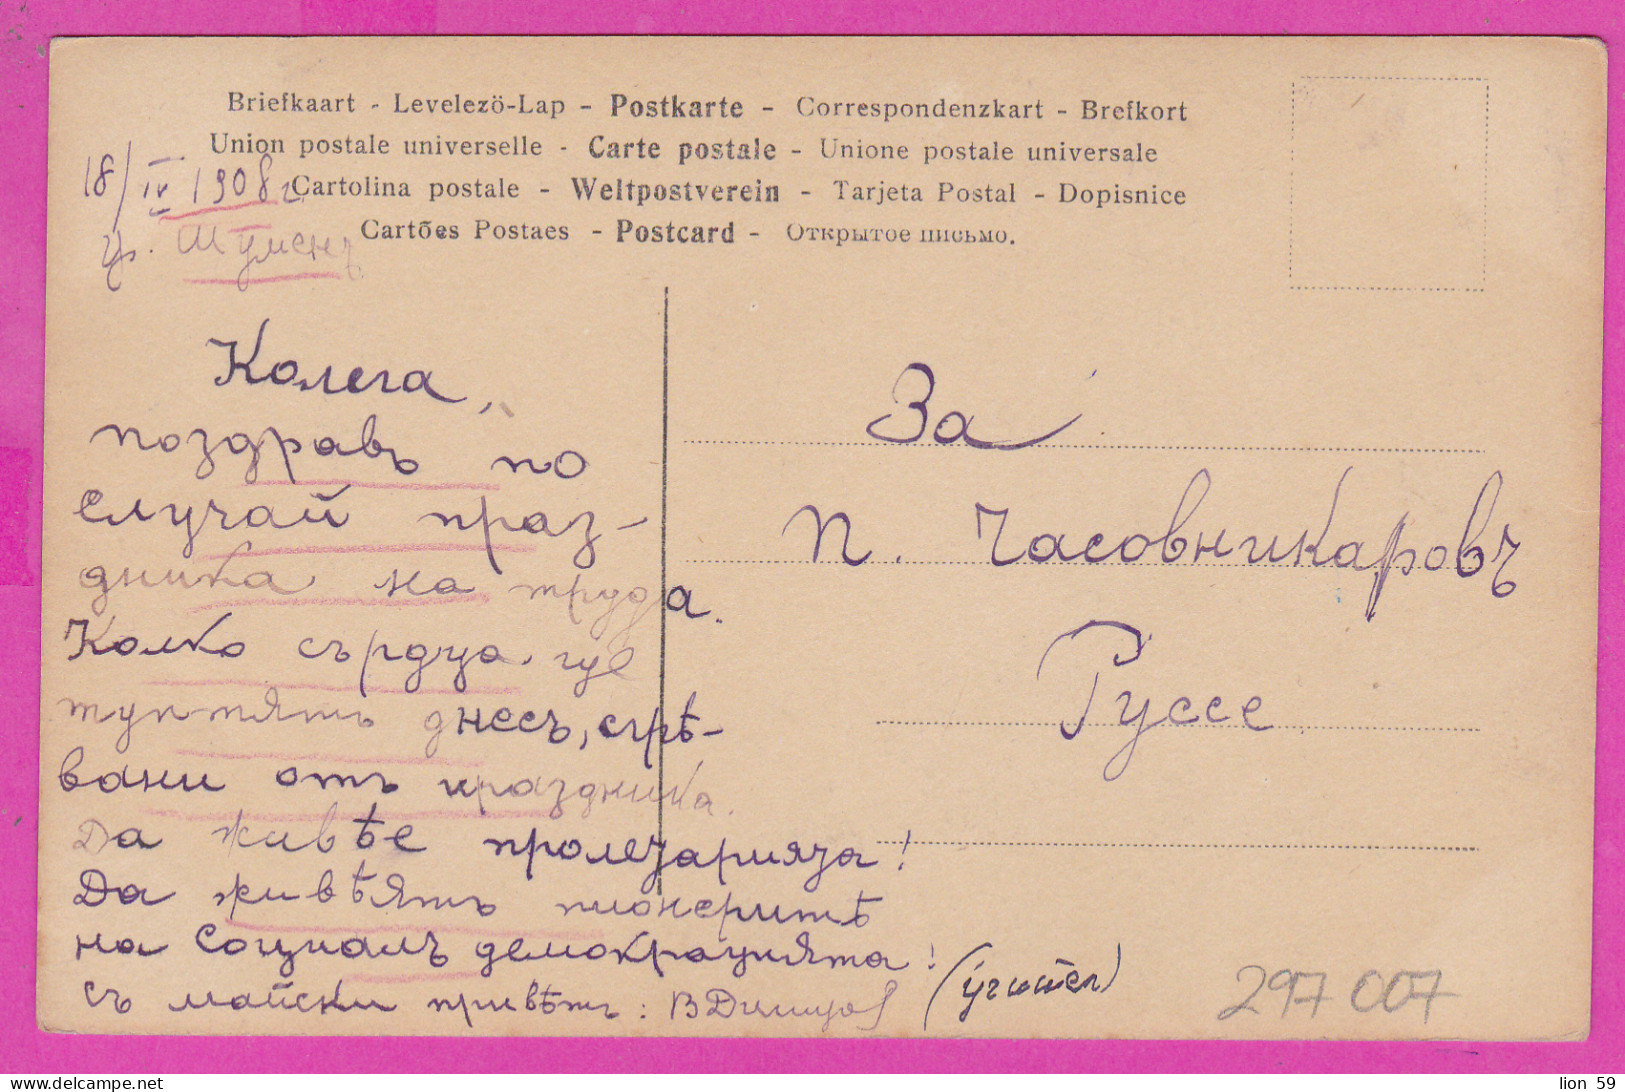 Briefkaart - Levelező-Lap - Postkarte - Correspondenzkart - Brefkort
Union postale universelle - Carte postale - Unione postale universale
Cartolina postale - Weltpostverein - Tarjeta Postal - Dopisnice
Cartões Postaes - Postcard - Открытое письмо.
18/IV 1908 г.
гр. Шуменъ
Колега,
поздравъ по
случай праз-
дника на труда.
Колко сърдца, где
туптятъ днесъ, сгрѣ-
вани отъ праздника.
Да живѣе пролетарията!
Да живѣятъ пионеритѣ
на социалъ демокрацията!
съ майски привѣтъ: В
(учител)
За
П. Часовникаровъ
Руссе
297 007
lion 59